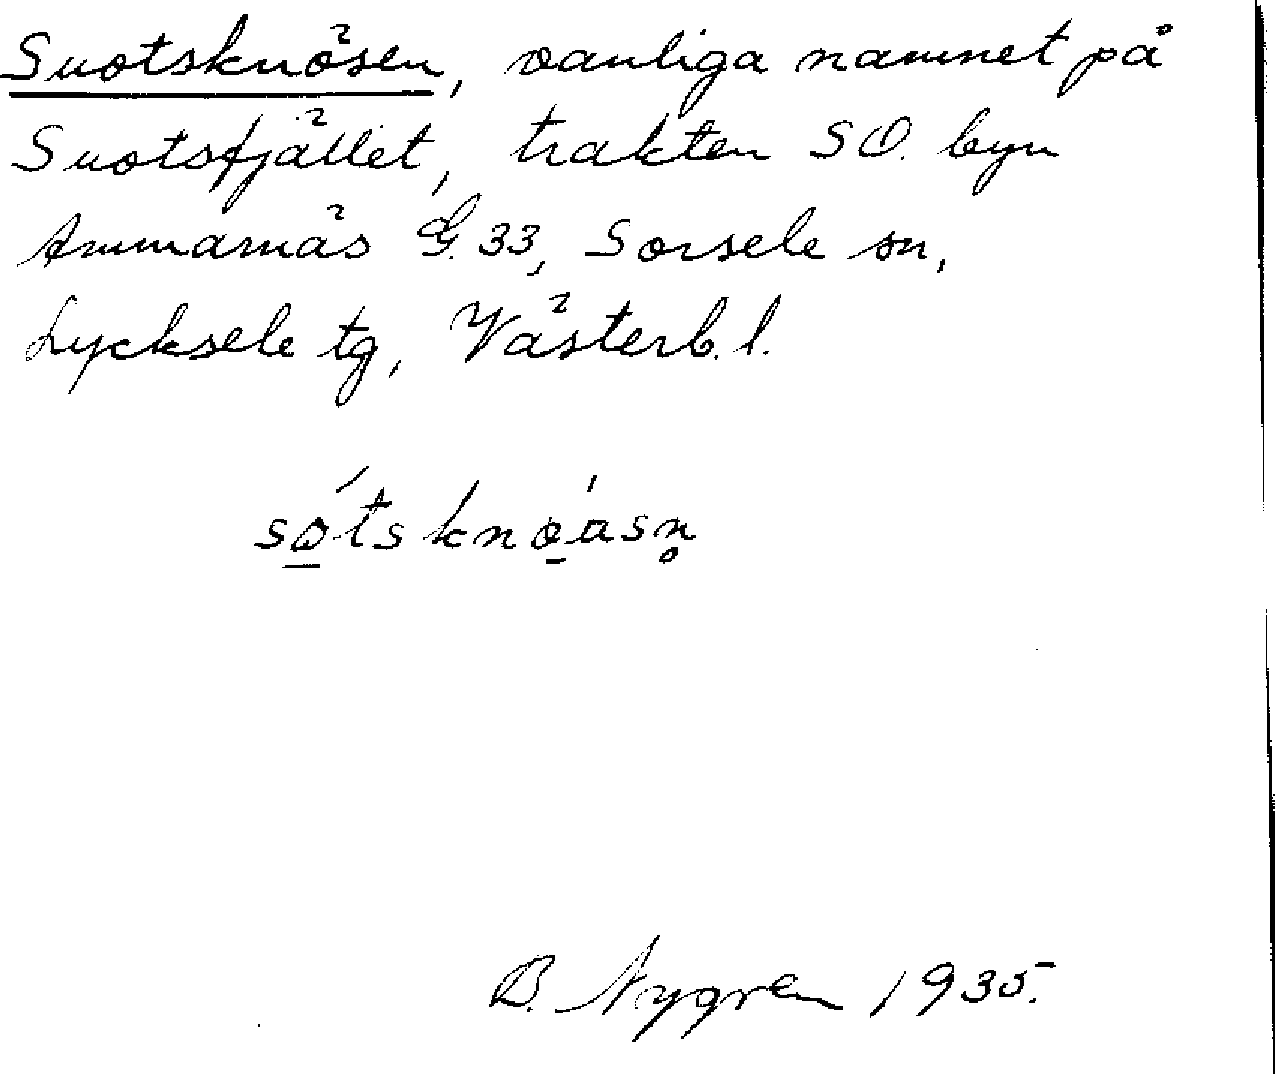 Suotsknösen, vanliga namnet på
Suotsfjället, trakten SO. byn
Ammarnäs G. 33, Sorsele sn,
Lycksele tg, Västerb. l.
B. Nygren 1935.